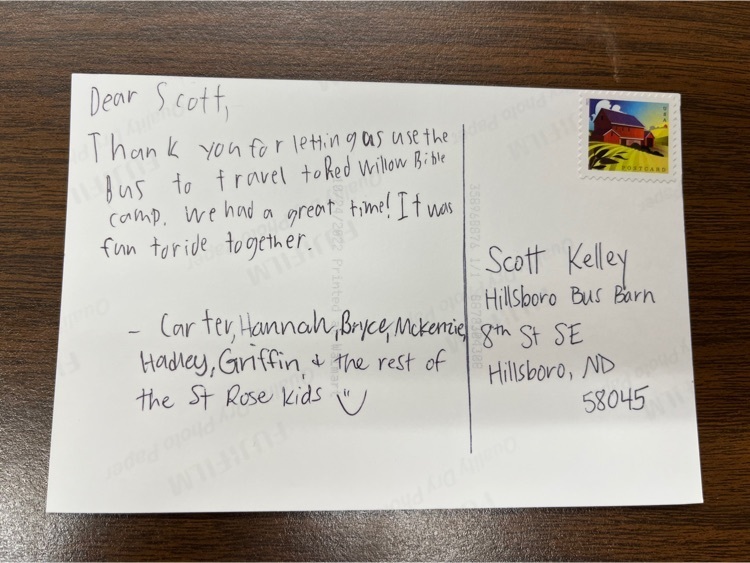 Dear Scott,
Thank you for letting us use the
Bus to travel to Red Willow Bible
camp. We had a great time! It was
fun to ride together.
- Carter, Hannah, Bryce, Mckenzie,
Hadley, Griffin, & the rest of
the St Rose kids
USA
POSTCARD
Scott Kelley
Hillsboro Bus Barn
8th St SE
Hillsboro, ND
58045
FUJIFILM
Quality Dry Photo Paper